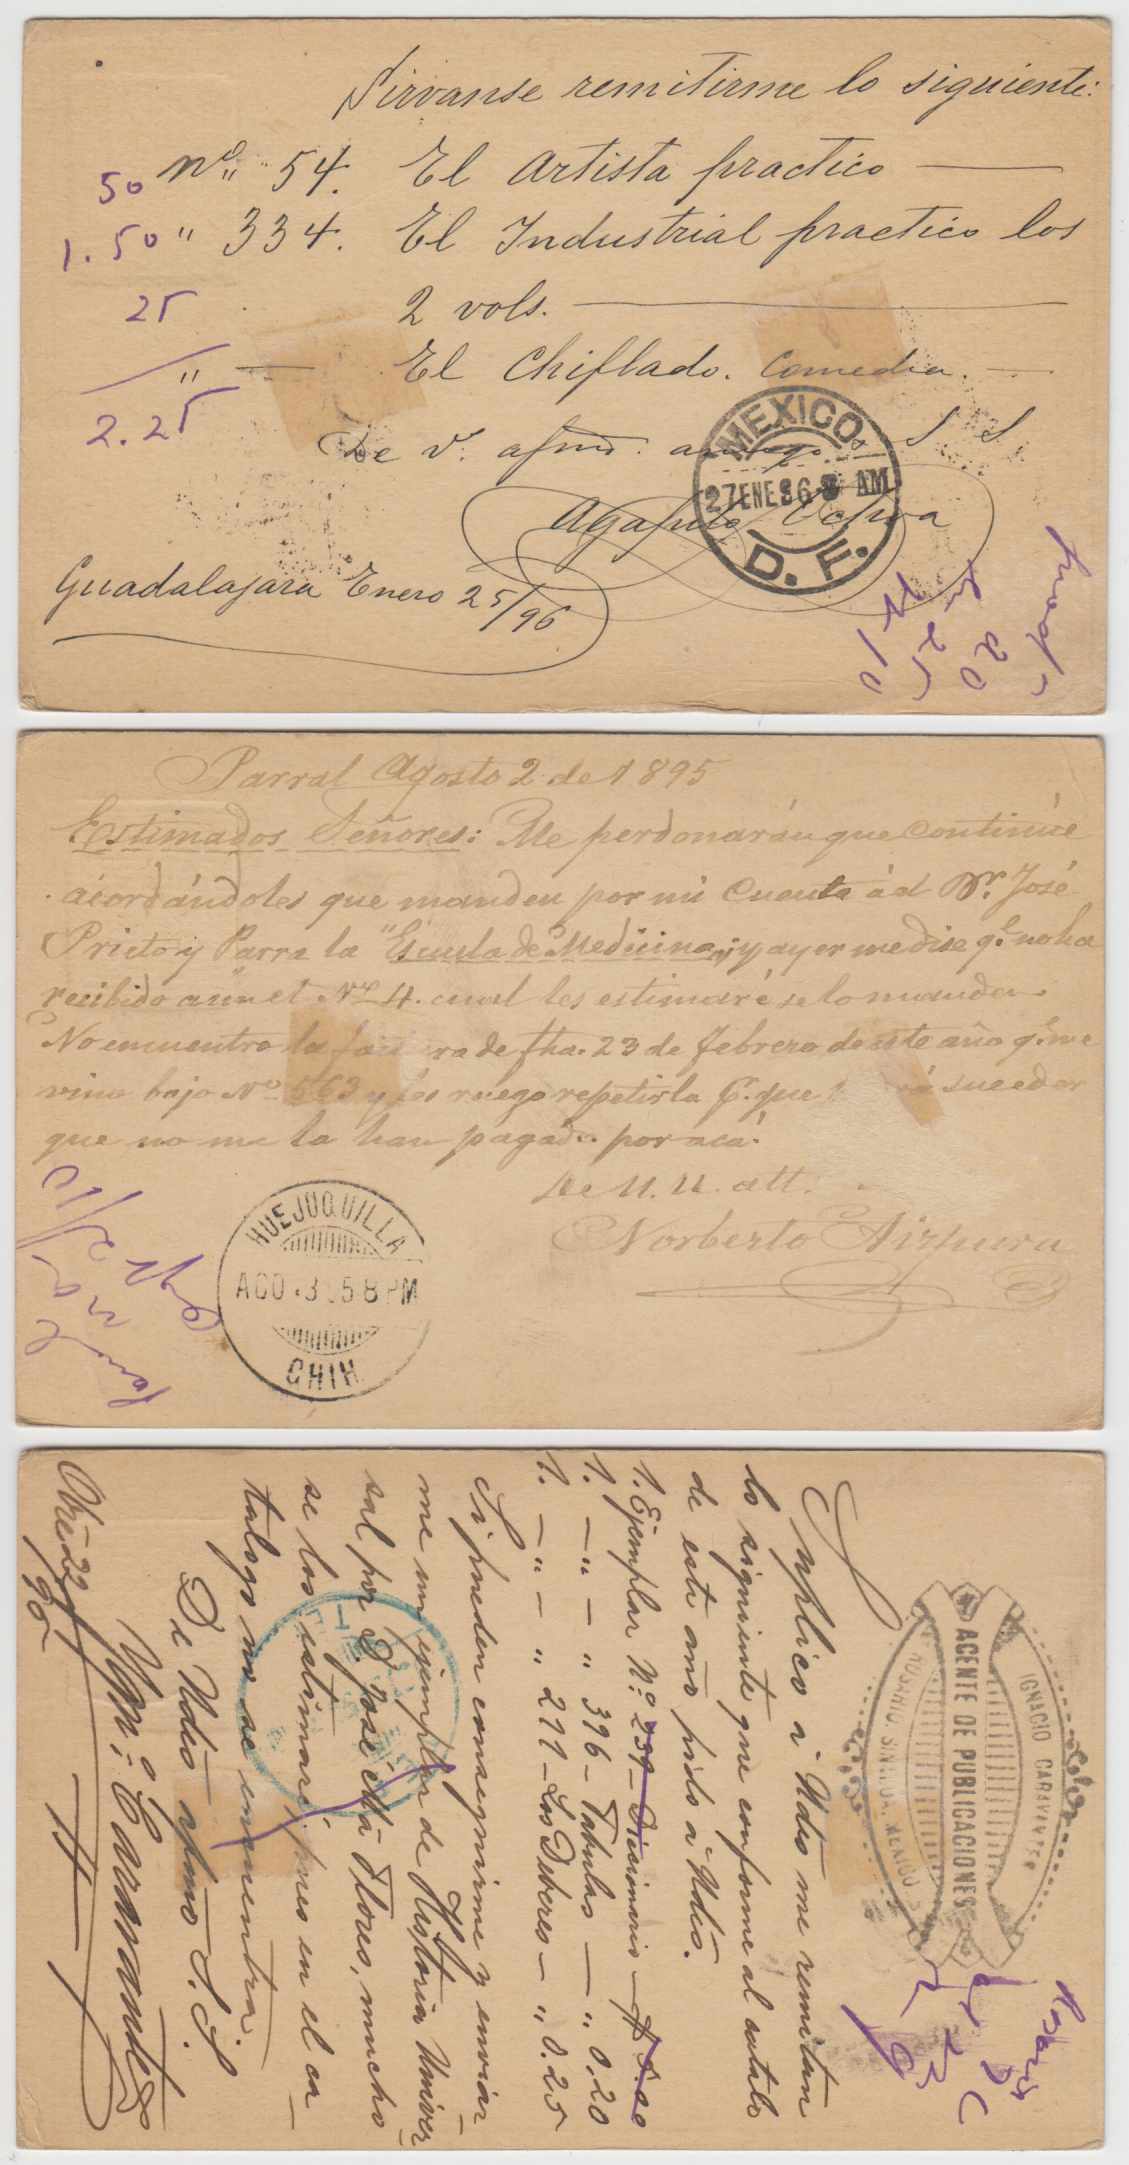 Sirvanse remitirme lo siguiente:
50 nº " 54. El Artista practico —
1.50 " 334. El Industrial practico los
25 2 vols. —
" — El Chiflado. Comedia. —
2.25
De V. afmo. amigo S S
MEXICO
27 ENE 96 8 AM
D. F.
Agapito Ochoa
Guadalajara Enero 25/96
20
25
10
Parral Agosto 2 de 1895
Estimados Señores: Me perdonarán que continúe
acordándoles que manden por mi cuenta ál Dr. José
Prieto y Parra la "Escuela de Medicina", y ayer me dise qe. no ha
recibido aun el No 4. cual les estimaré se lo manden.
No encuentro la fac ra de fha. 23 de febrero de este año qe. me
vino bajo No. 563 y les ruego repetirla p. que á suceder
que no me la han pagado por acá.
De U. U. att.
Norberto Aizpuru
HUEJUQUILLA
AGO. 3 58 PM
CHIH
IGNACIO CARAVANTES
AGENTE DE PUBLICACIONES
ROSARIO. SINALOA. MEXICO
Suplico a' Udes me remitan
lo siguiente que conforme al catalo
de este año pido a' Udes.
1. Ejemplar No. 239 – Diccionario –
1. — " — " 396 – Fabulas — " 0,20
1. — " — " 277 – Los Deberes — " 0.25
Si pueden conseguirme y enviar
me un ejemplar de Historia Univer
sal por D. José Ma Flores, mucho
se los estimaré, pues en el ca
talogo no se encuentra.
De Udes afmo S. S.
Ygnº. Caravantes
Obre 22/95